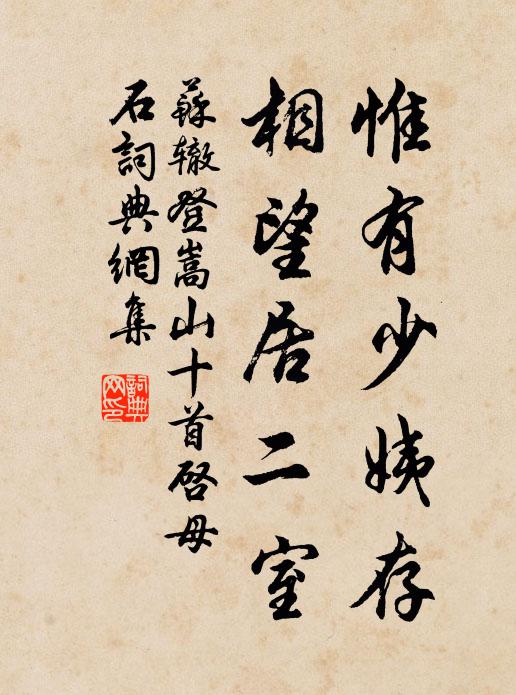 惟有少姨存
相望居二室
蘇辙登嵩山十首啓母
石詞典網集
詞典
网印